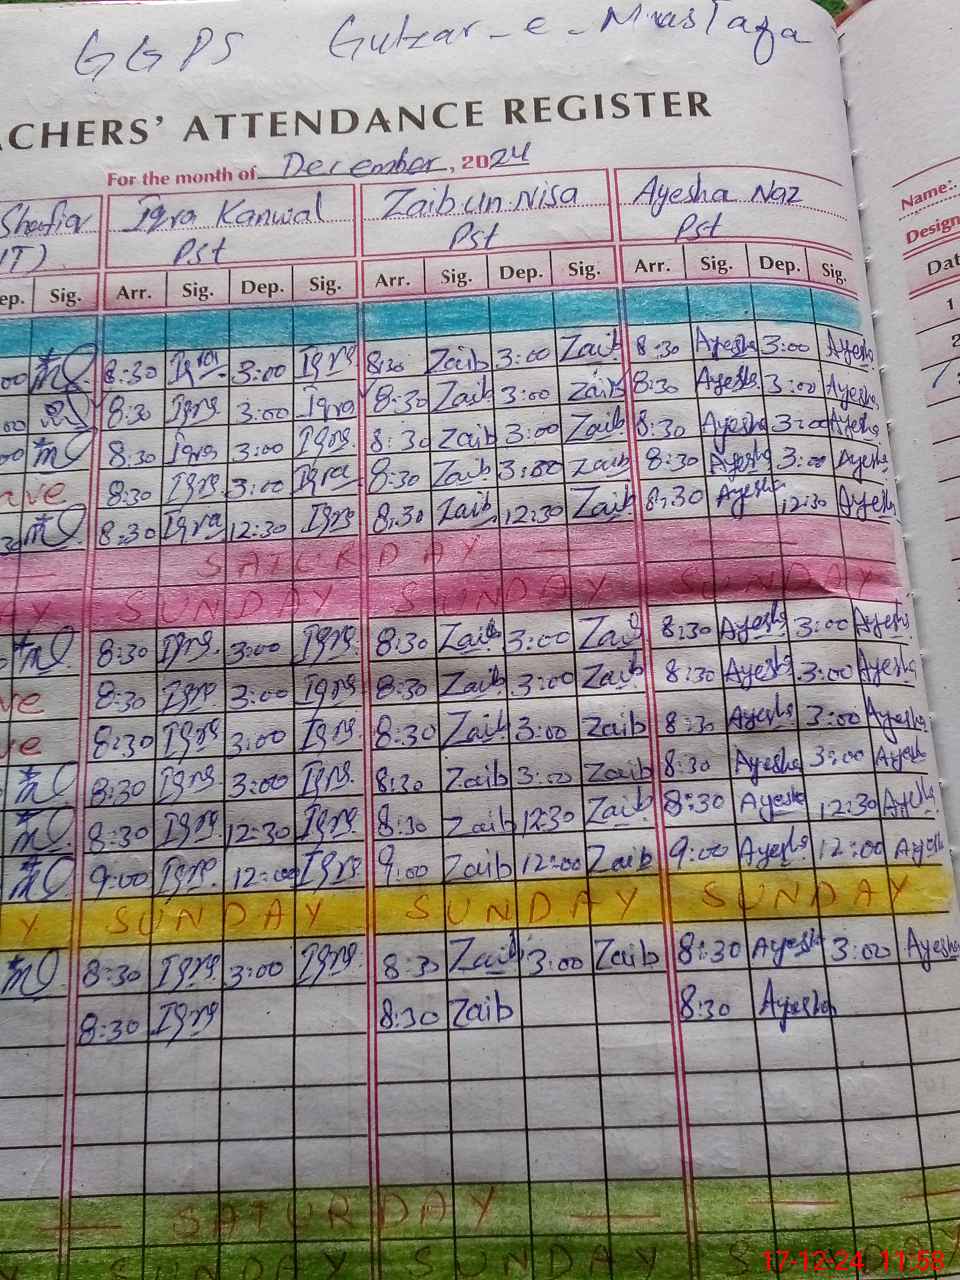 GGPS Gulzar-e-Mustafa
CHERS' ATTENDANCE REGISTER
For the month of December, 2024
Shafia Iqra Kanwal Zaib un Nisa Ayesha Naz
IT) Pst Pst Pst
ep. Sig. Arr. Sig. Dep. Sig. Arr. Sig. Dep. Sig. Arr. Sig. Dep. Sig.
00 8:30 Iqra 3:00 Iqra 8:30 Zaib 3:00 Zaib 8:30 Ayesha 3:00 Ayesha
00 8:30 Iqra 3:00 Iqra 8:30 Zaib 3:00 Zaib 8:30 Ayesha 3:00 Ayesha
00 8:30 Iqra 3:00 Iqra 8:30 Zaib 3:00 Zaib 8:30 Ayesha 3:00 Ayesha
ave 8:30 Iqra 3:00 Iqra 8:30 Zaib 3:00 Zaib 8:30 Ayesha 3:00 Ayesha
8:30 Iqra 12:30 Iqra 8:30 Zaib 12:30 Zaib 8:30 Ayesha 12:30 Ayesha
SATURDAY
AY SUNDAY SUNDAY SUNDAY
8:30 Iqra 3:00 Iqra 8:30 Zaib 3:00 Zaib 8:30 Ayesha 3:00 Ayesha
ve 8:30 Iqra 3:00 Iqra 8:30 Zaib 3:00 Zaib 8:30 Ayesha 3:00 Ayesha
ve 8:30 Iqra 3:00 Iqra 8:30 Zaib 3:00 Zaib 8:30 Ayesha 3:00 Ayesha
8:30 Iqra 3:00 Iqra 8:30 Zaib 3:00 Zaib 8:30 Ayesha 3:00 Ayesha
8:30 Iqra 12:30 Iqra 8:30 Zaib 12:30 Zaib 8:30 Ayesha 12:30 Ayesha
9:00 Iqra 12:00 Iqra 9:00 Zaib 12:00 Zaib 9:00 Ayesha 12:00 Ayesha
Y SUNDAY SUNDAY SUNDAY
8:30 Iqra 3:00 Iqra 8:30 Zaib 3:00 Zaib 8:30 Ayesha 3:00 Ayesha
8:30 Iqra 8:30 Zaib 8:30 Ayesha
SATURDAY
Y SUNDAY SUNDAY SUNDAY
Name:
Design
Dat
1
2
17-12-24 11:58